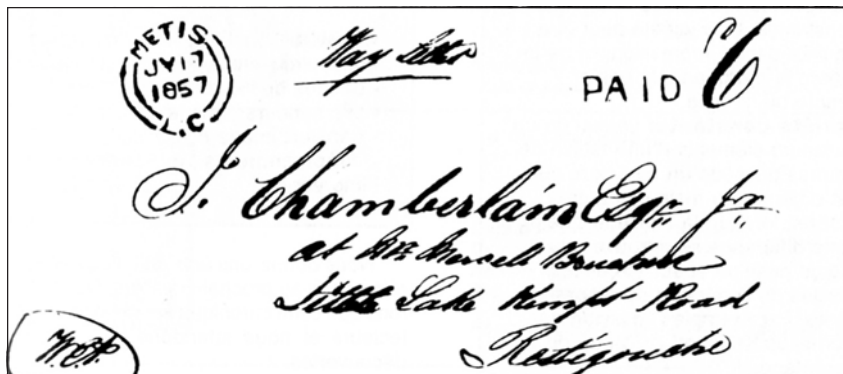 METIS
JY 17
1857
L.C
Way Letter
PAID 6
J. Chamberlain Esqr Jr
at Mr Marcell
Little Lake Kempt Road
Restigouche